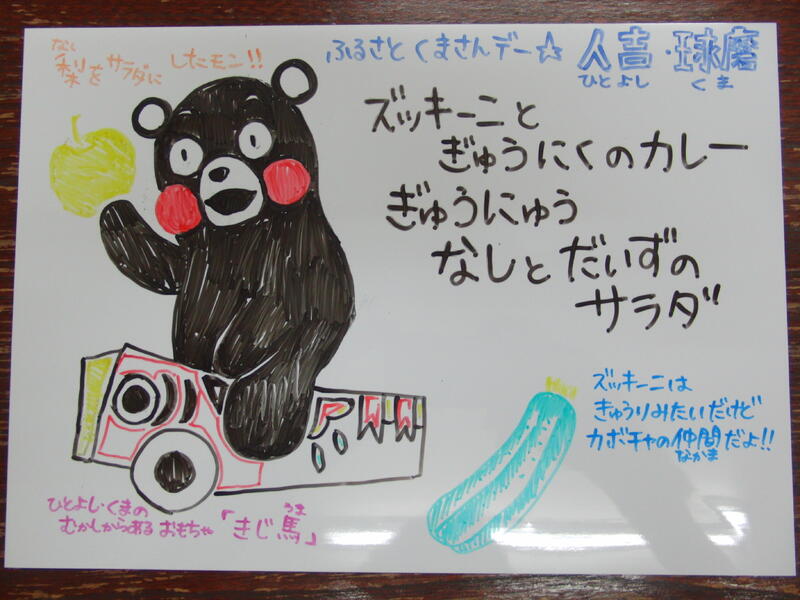 なし
梨をサラダに したモン!!
ふるさと くまさんデー☆ 人吉・球磨
ひとよし くま
ズッキーニと
ぎゅうにくのカレー
ぎゅうにゅう
なしとだいずの
サラダ
ズッキーニは
きゅうりみたいだけど
カボチャの仲間だよ!!
なかま
ひとよし・くまの
むかしからある おもちゃ 「きじ馬」
うま